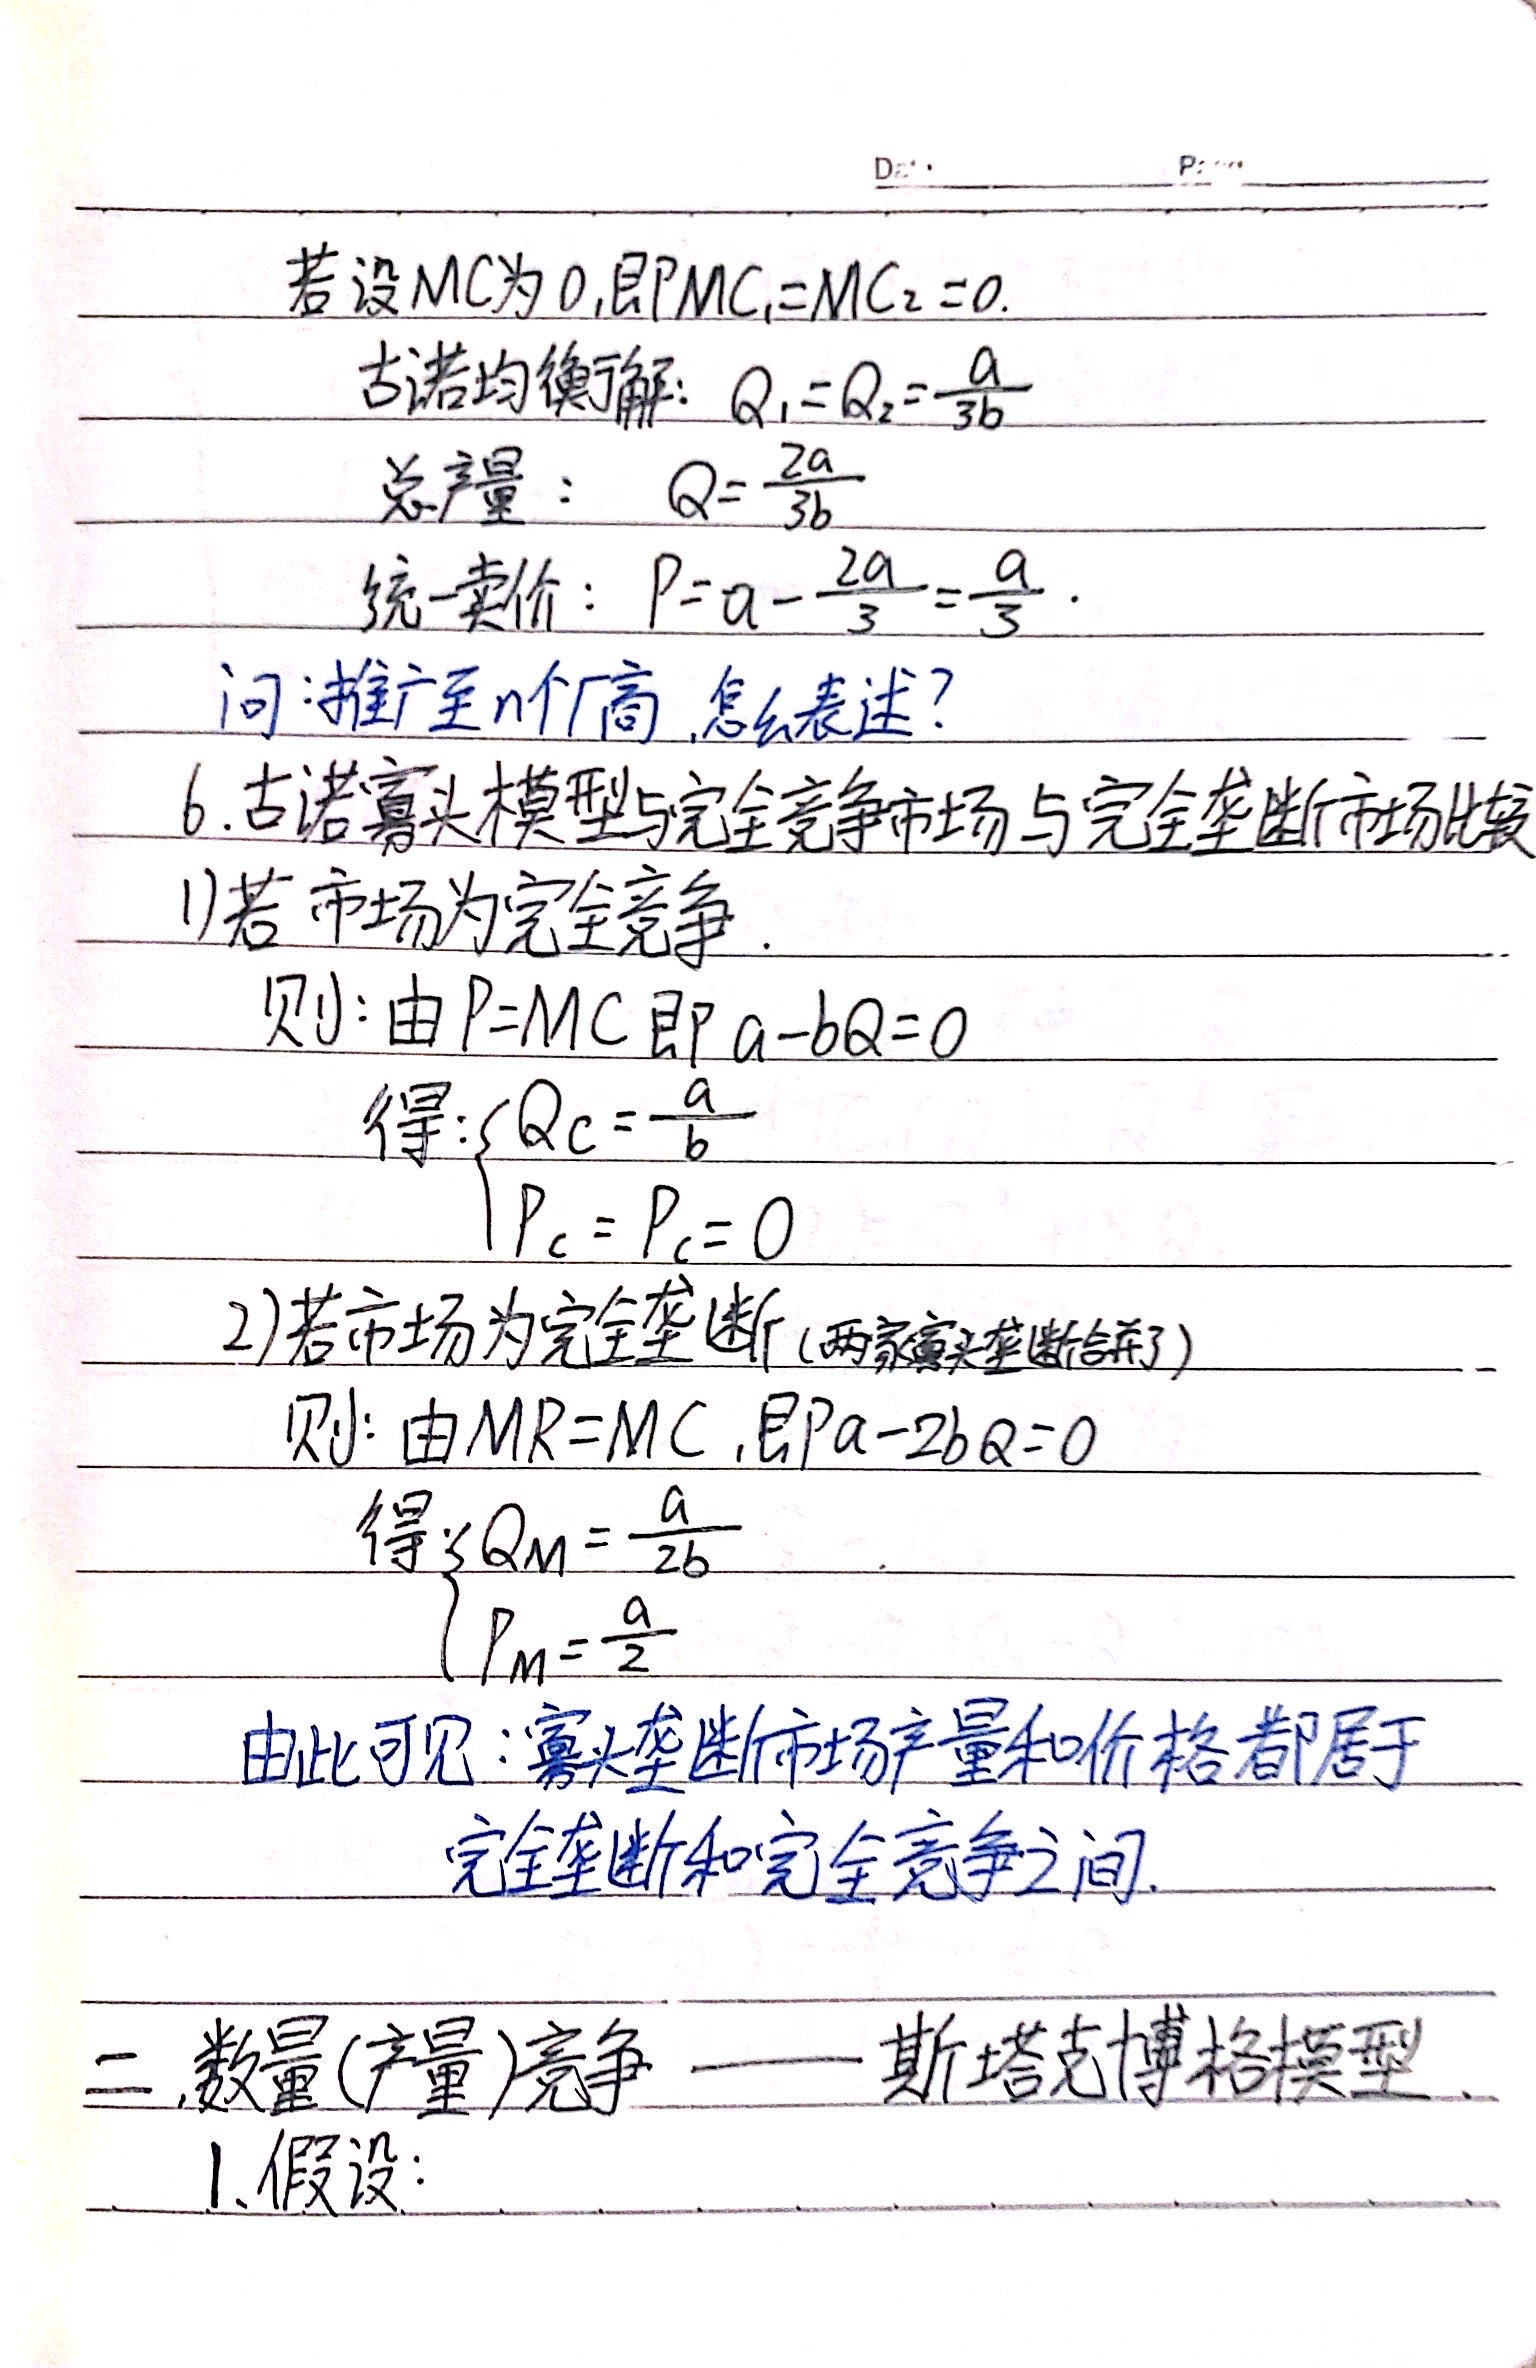 Date Page
若设MC为0,即MC₁=MC₂=0.
古诺均衡解: Q₁=Q₂=a/3b
总产量: Q=2a/3b
统一卖价: P=a-2a/3=a/3.
问:推广至n个厂商,怎么表述?
6.古诺寡头模型与完全竞争市场与完全垄断市场比较
1)若市场为完全竞争.
则:由P=MC即a-bQ=0
得:{Qc=a/b
Pc=Pc=0
2)若市场为完全垄断(两家寡头垄断合并了)
则:由MR=MC,即a-2bQ=0
得:{Q_M=a/2b
P_M=a/2
由此可见:寡头垄断市场产量和价格都居于
完全垄断和完全竞争之间.
二、数量(产量)竞争——斯塔克博格模型.
1.假设: